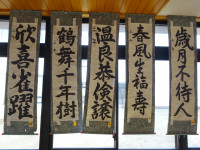 歳月不待人
春風生福寿
温良恭倹譲
鶴舞千年樹
欣喜雀躍